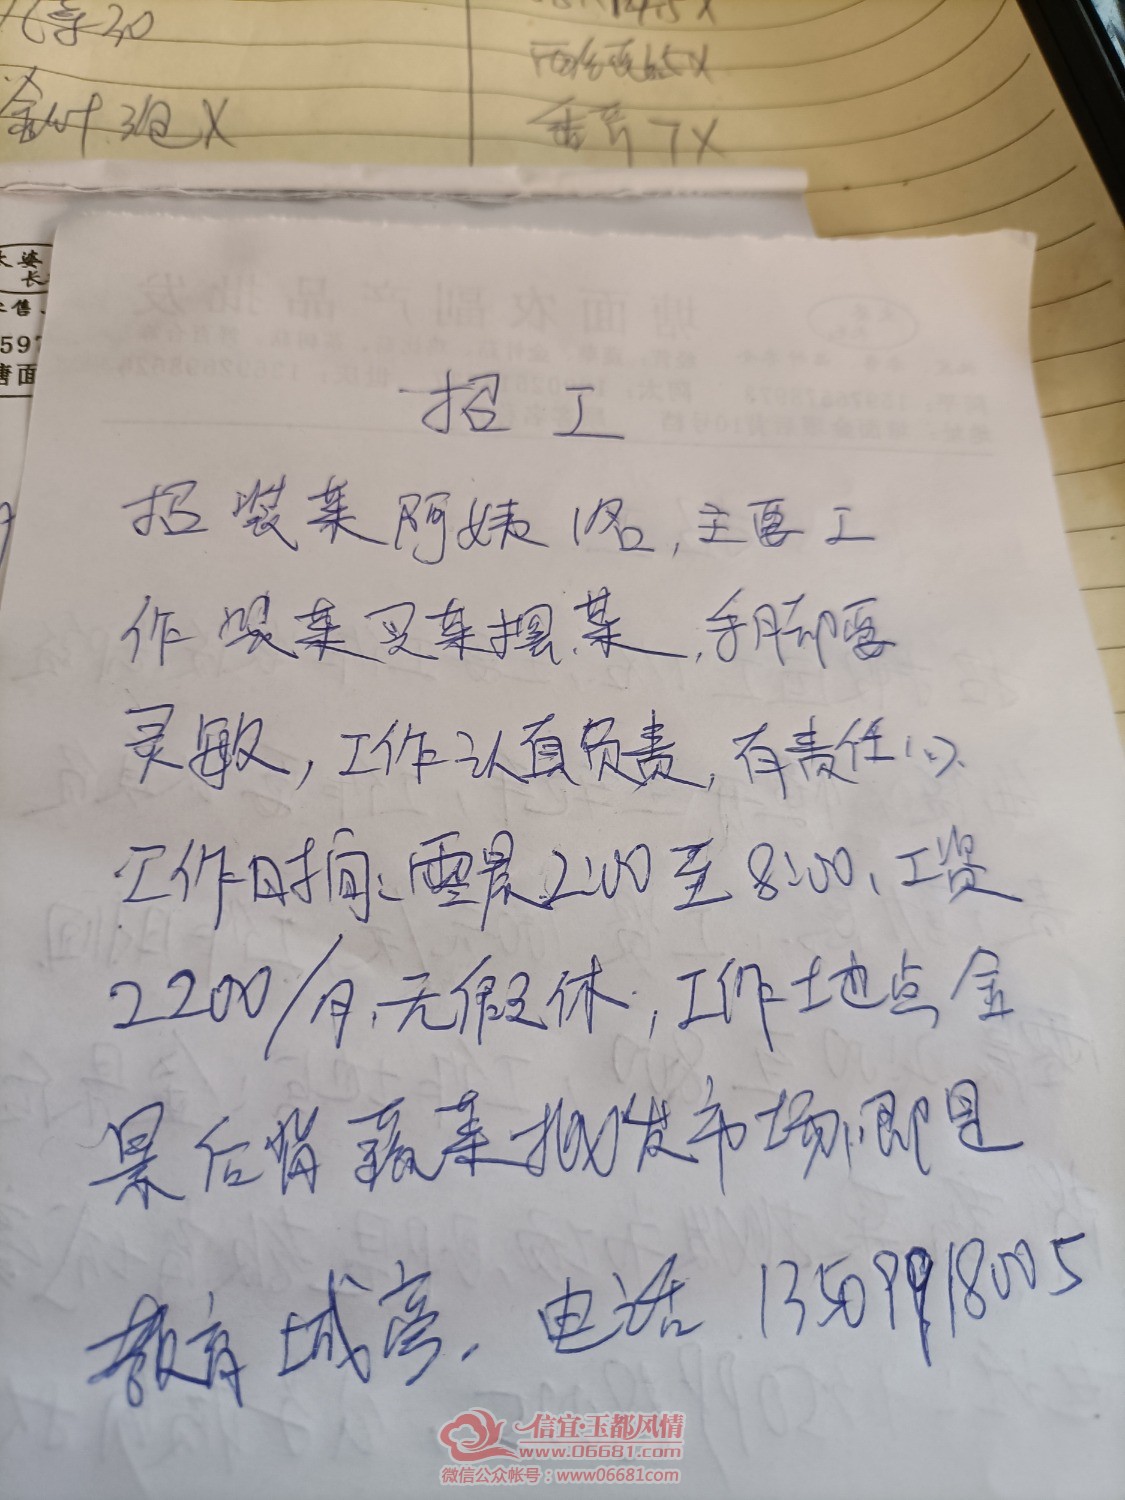 金针3包X
香芹7X
塘面农副产品批发
招工
招装菜阿姨1名,主要工
作装菜叉菜摆菜,手脚要
灵敏,工作认真负责,有责任心
工作时间:零晨2:00至8:00、工资
2200/月,无假休,工作地点金
景后背蔬菜批发市场,即是
教育城旁.电话13509918005
信宜·玉都风情
www.06681.com
微信公众帐号:www06681com